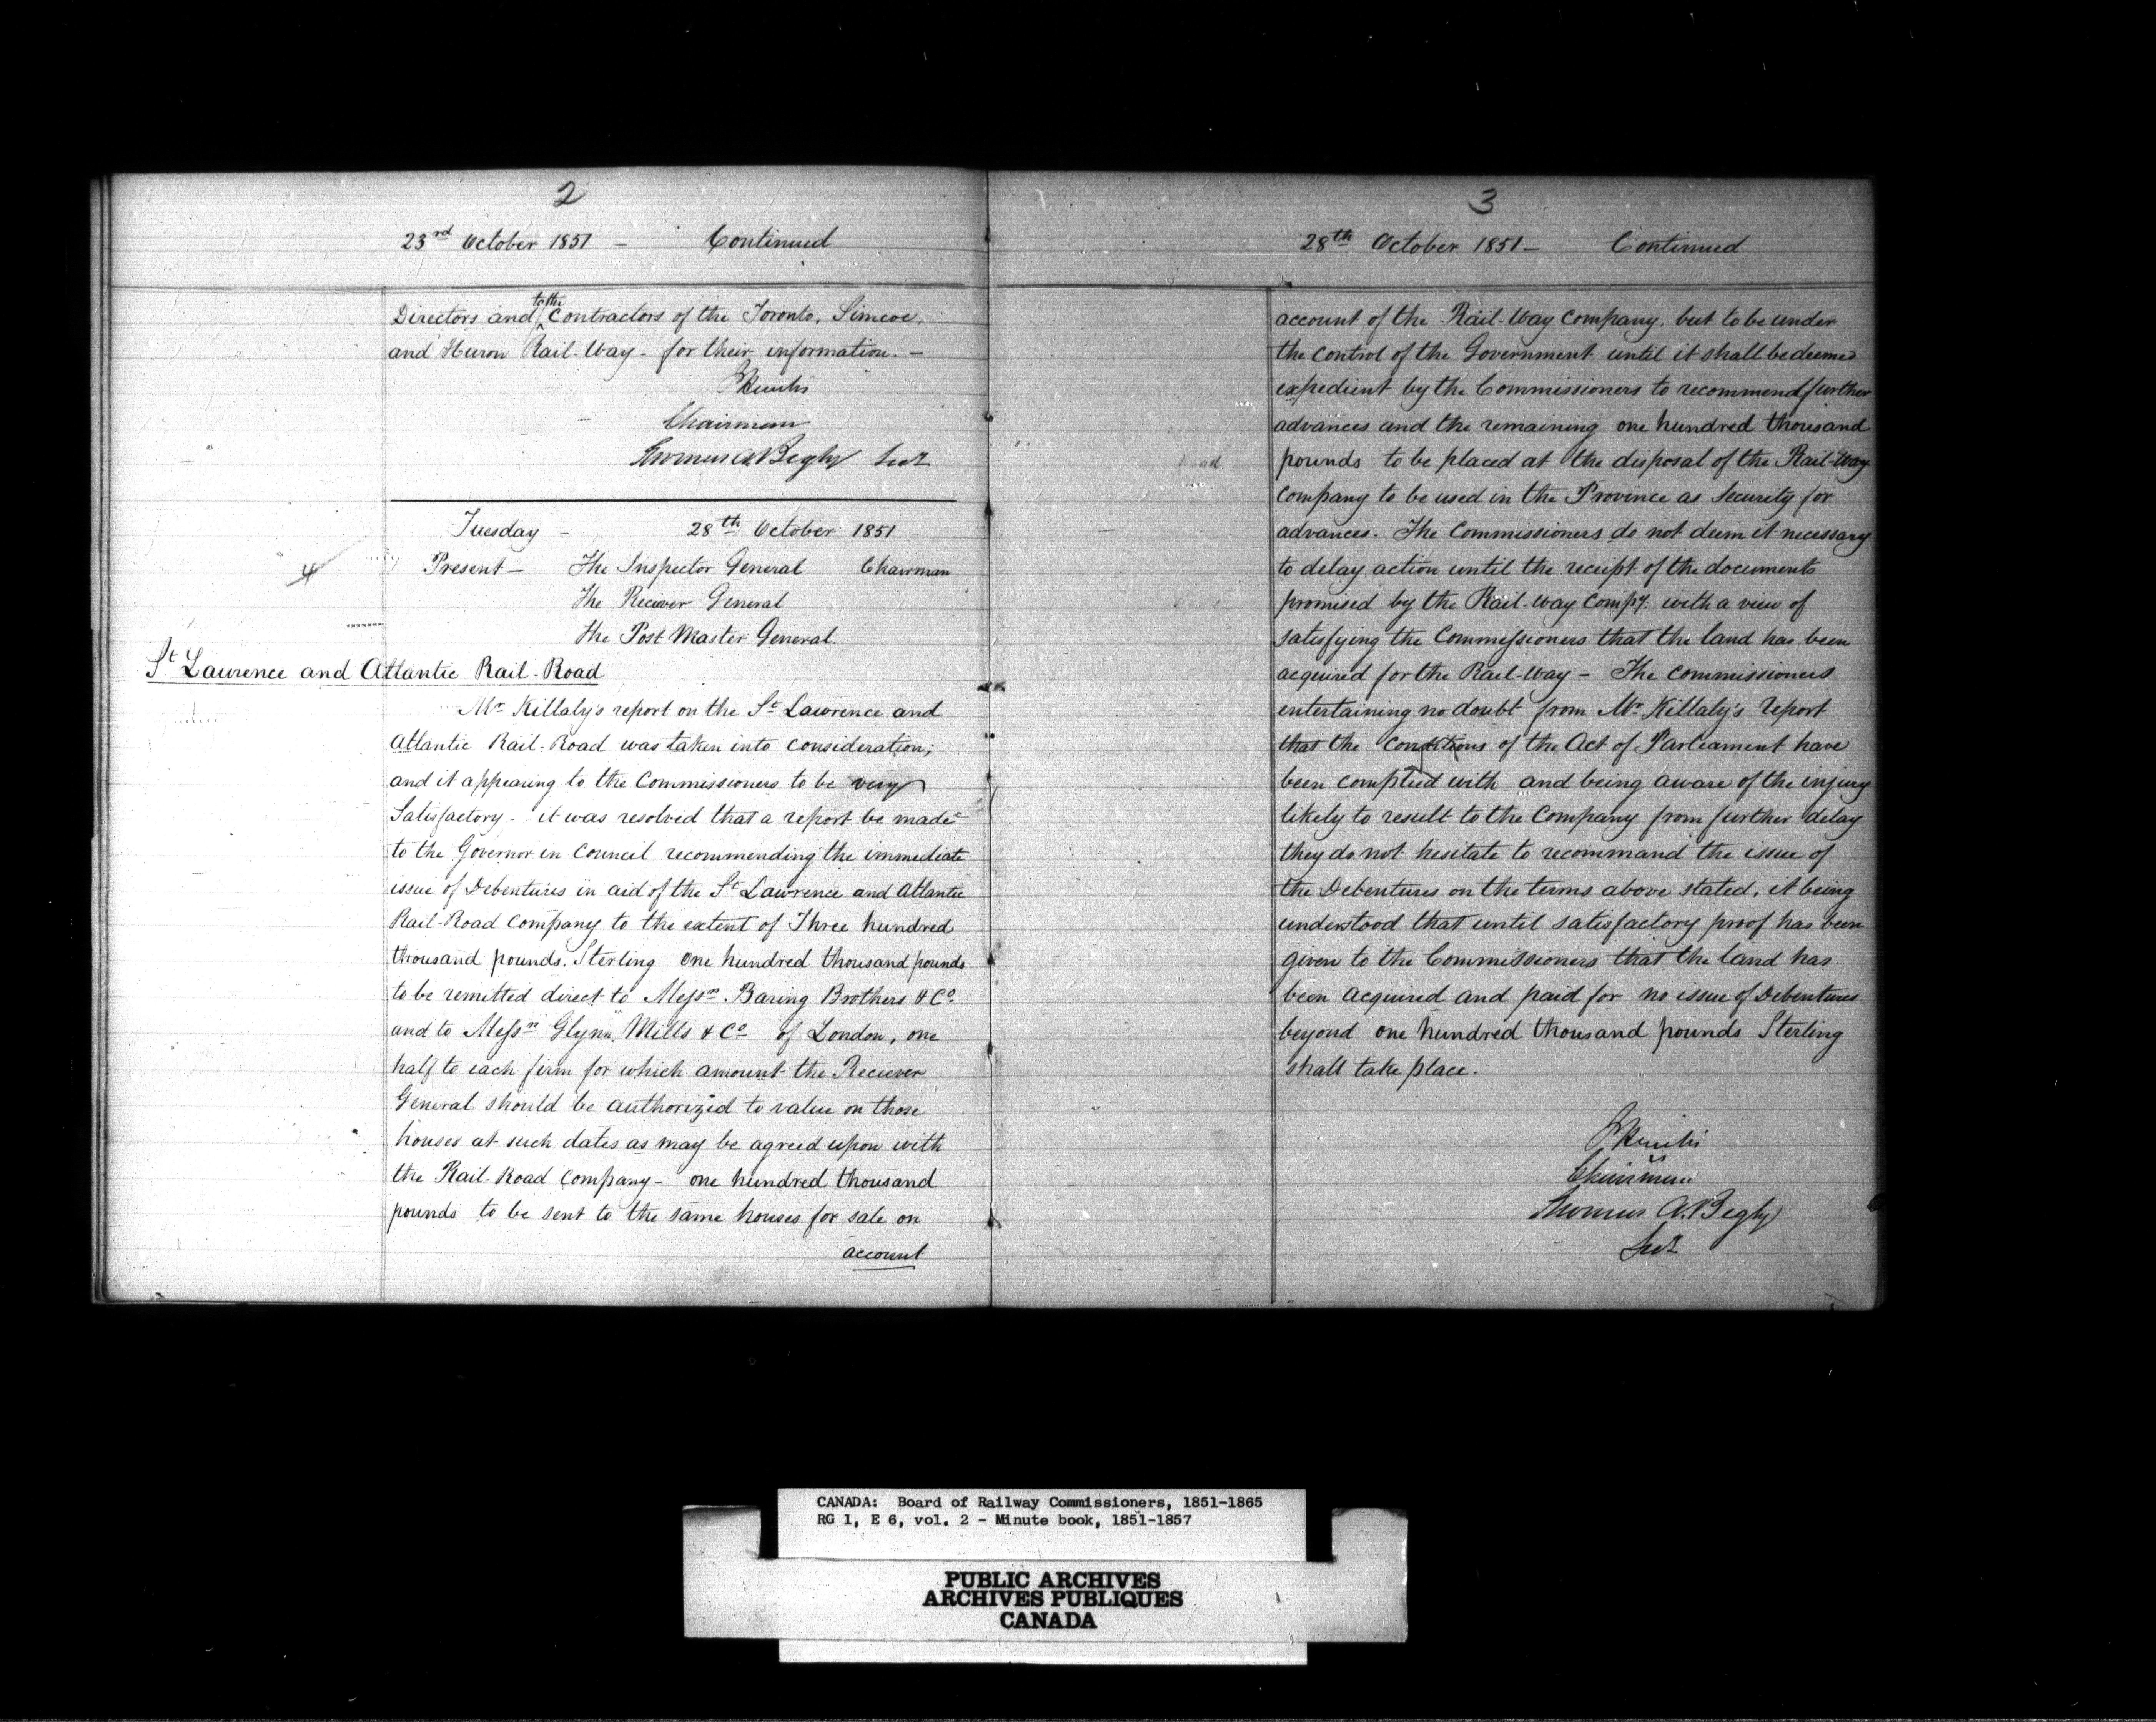 2
23rd October 1851 - Continued
Directors and to the Contractors of the Toronto, Simcoe,
and Huron Rail-Way - for their information. -
Chairman
Thomas A. Begly Secy
Tuesday - 28th October 1851
4
Present - The Inspector General Chairman
The Reciever General
The Post Master General.
St Lawrence and Atlantic Rail-Road
Mr Killaly's report on the St Lawrence and
Atlantic Rail-Road was taken into consideration;
and it appearing to the Commissioners to be very
Satisfactory - it was resolved that a report be made
to the Governor in Council recommending the immediate
issue of Debentures in aid of the St Lawrence and Atlantic
Rail-Road Company to the extent of Three hundred
thousand pounds. Sterling one hundred thousand pounds
to be remitted direct to Messrs. Baring Brothers & Co.
and to Messrs Glynn, Mills & Co of London, one
half to each firm for which amount the Reciever
General should be authorized to value on those
houses at such dates as may be agreed upon with
the Rail-Road Company - one hundred thousand
pounds to be sent to the same houses for sale on
account
3
28th October 1851 - Continued
account of the Rail-Way Company, but to be under
the control of the Government until it shall be deemed
expedient by the Commissioners to recommend further
advances and the remaining one hundred thousand
pounds to be placed at the disposal of the Rail-Way
Company to be used in the Province as Security for
advances. The Commissioners do not deem it necessary
to delay action until the receipt of the documents
promised by the Rail-way Compy. with a view of
satisfying the Commissioners that the land has been
acquired for the Rail-Way - The Commissioners
entertaining no doubt from Mr Killaly's report
that the conditions of the Act of Parliament have
been complied with and being aware of the injury
likely to result to the Company from further delay
they do not hesitate to recommand the issue of
the Debentures on the terms above stated, it being
understood that until satisfactory proof has been
given to the Commissioners that the land has
been acquired and paid for no issue of Debentures
beyond one hundred thousand pounds Sterling
shall take place.
Chairman
Thomas A. Begly
Secy
CANADA: Board of Railway Commissioners, 1851-1865
RG 1, E 6, vol. 2 - Minute book, 1851-1857
PUBLIC ARCHIVES
ARCHIVES PUBLIQUES
CANADA